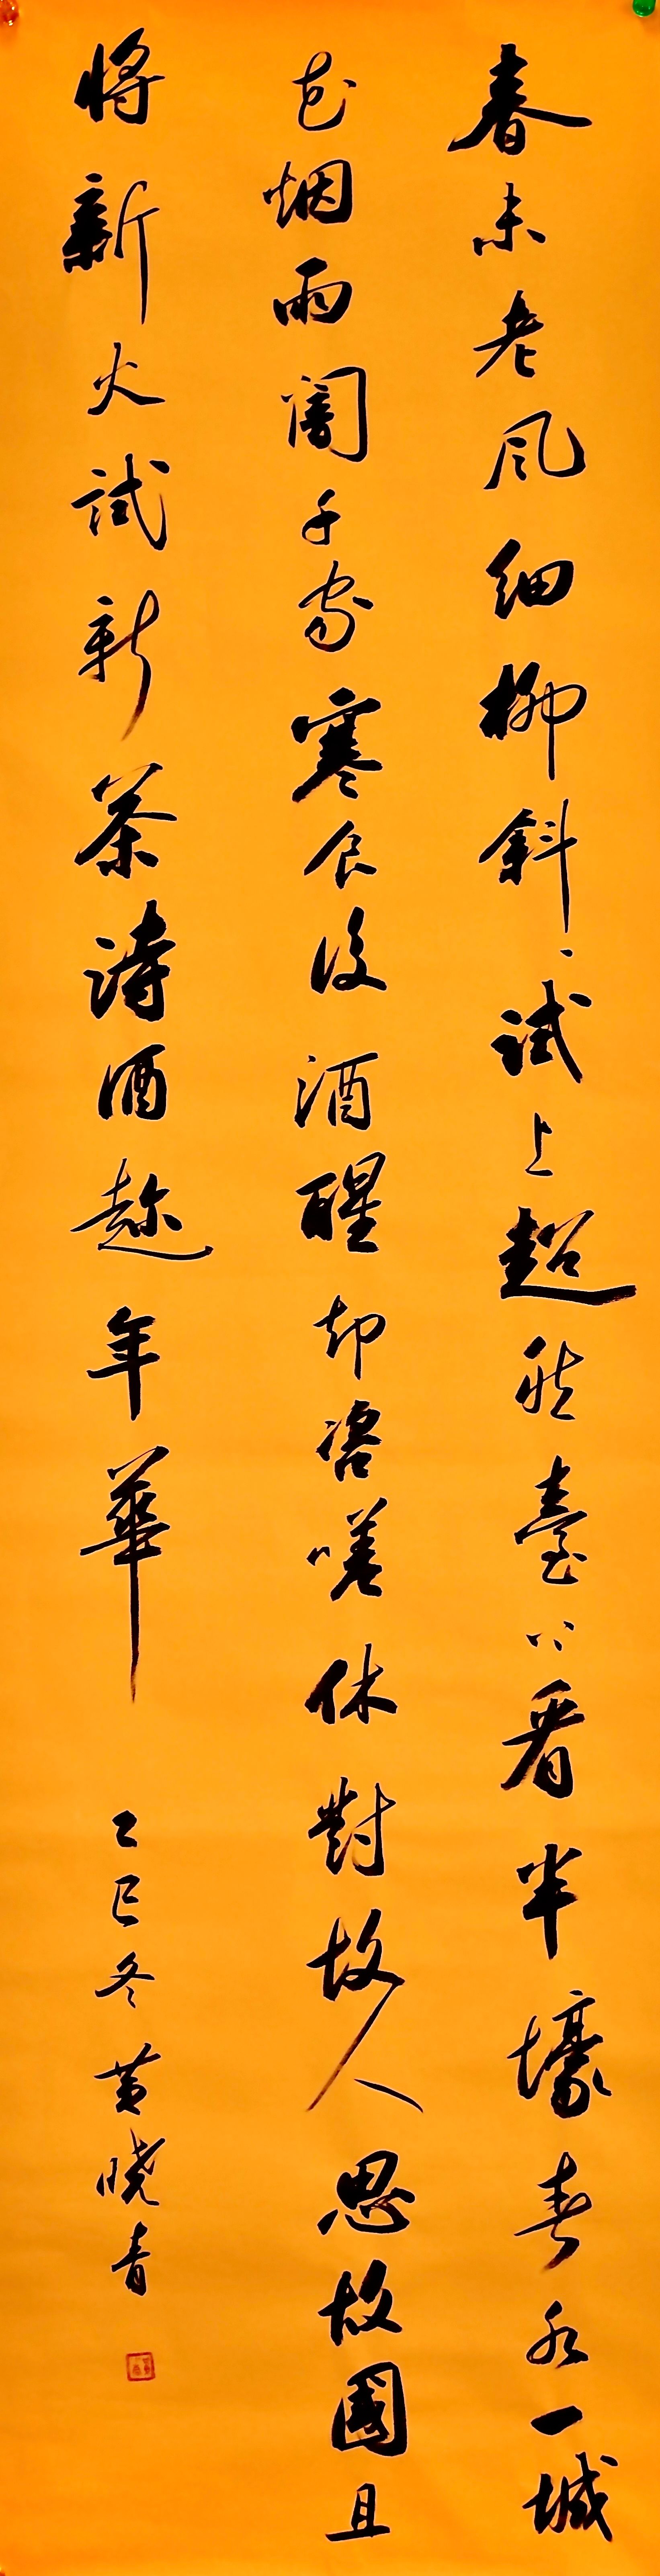 春未老风细柳斜〻试上超然臺〻看半壕春水一城
花烟雨闇千家寒食後酒醒却咨嗟休對故人思故國且
将新火試新茶詩酒趂年華
乙巳冬黄晓青